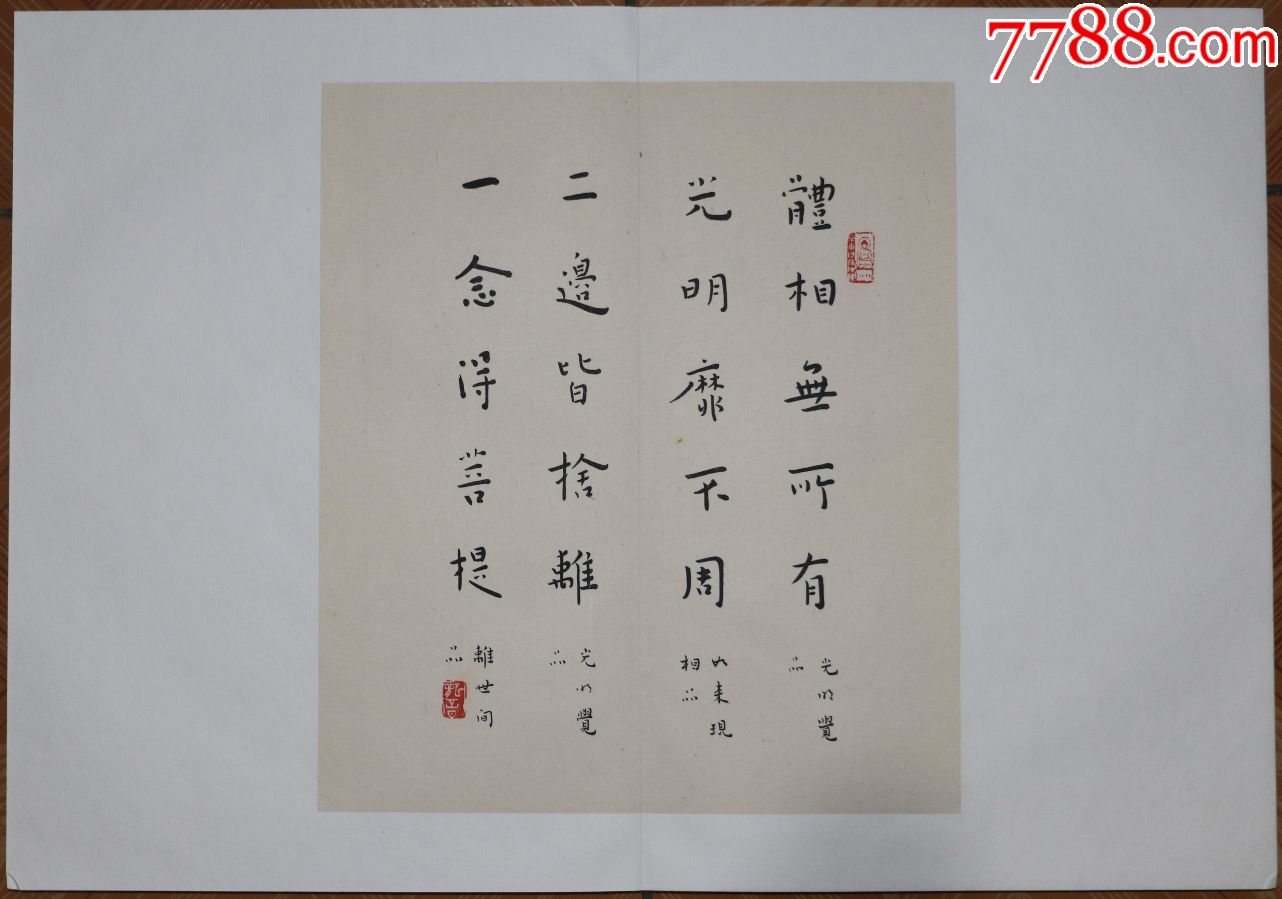 7788.com
體相無所有
光明覺
品
光明靡不周
如来現
相品
二邊皆捨離
光明覺
品
一念得菩提
離世间
品